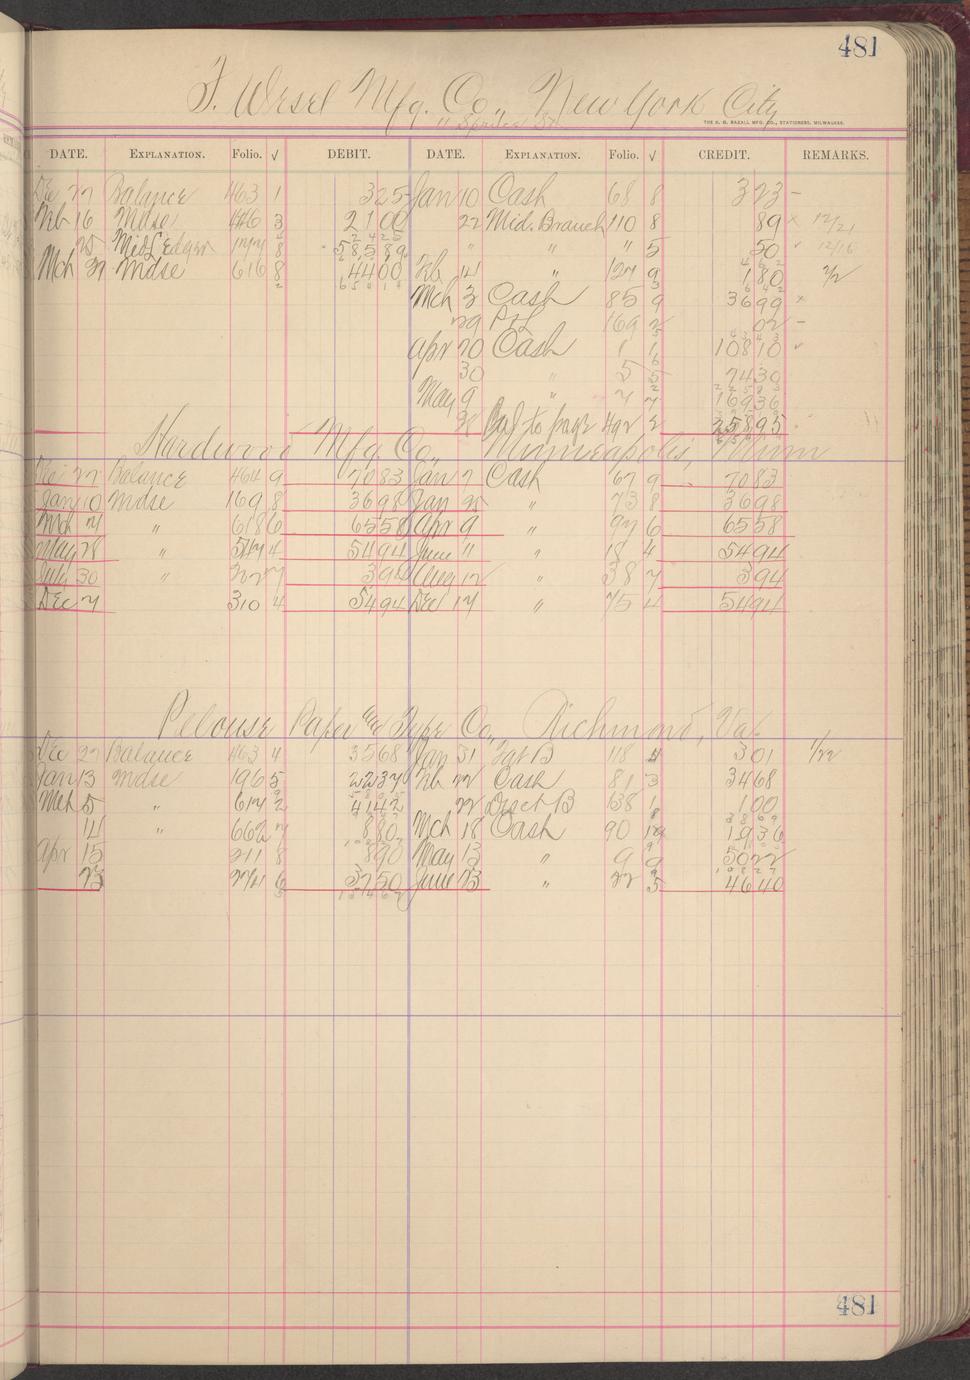 481
F. Wesel Mfg. Co., New York City
11 Spruce St.
THE H. H. BAZALL MFG. CO., STATIONERS, MILWAUKEE.
DATE. EXPLANATION. Folio. √ DEBIT. DATE. EXPLANATION. Folio. √ CREDIT. REMARKS.
Dec 27 Balance 463 1 325 Jan 10 Cash 68 8 323 –
Feb 16 Mdse 446 3 2100 22 Mid. Branch 110 8 89 × 12/21
25 Mid Ledger 177 8 58589 " " " 5 50 " 2/16
Mch 31 Mdse 616 8 4400 Feb 14 " 127 9 180 2/2
Mch 3 Cash 85 9 3699 ×
29 P&L 169 2 02 –
Apr 20 Cash 1 1 10810 "
30 " 5 5 7430
May 9 " 7 7 16936
28 Bal to page 492 2 25895
Hardwood Mfg. Co., Minneapolis, Minn
Dec 27 Balance 464 9 7083 Jan 7 Cash 67 9 7083
Jan 10 Mdse 169 8 3698 Jan 25 " 73 8 3698
Mch 7 " 618 6 6558 Apr 9 " 97 6 6558
May 28 " 547 4 5494 June 11 " 18 4 5494
July 30 " 227 7 394 Aug 12 " 38 7 394
Dec 7 310 4 5494 Dec 17 " 75 4 5494
Pelouse Paper and Type Co., Richmond, Va.
Dec 27 Balance 463 4 3568 Jan 31 Fgt B 118 4 301 1/22
Jan 13 Mdse 196 5 2237 Feb 22 Cash 81 3 3468
Mch 5 " 617 2 4142 22 Disct B 138 1 100
14 " 662 7 880 Mch 18 Cash 90 1936
Apr 15 211 8 890 May 13 " 9 9 5022
23 221 6 3750 June 23 " 22 5 4640
481